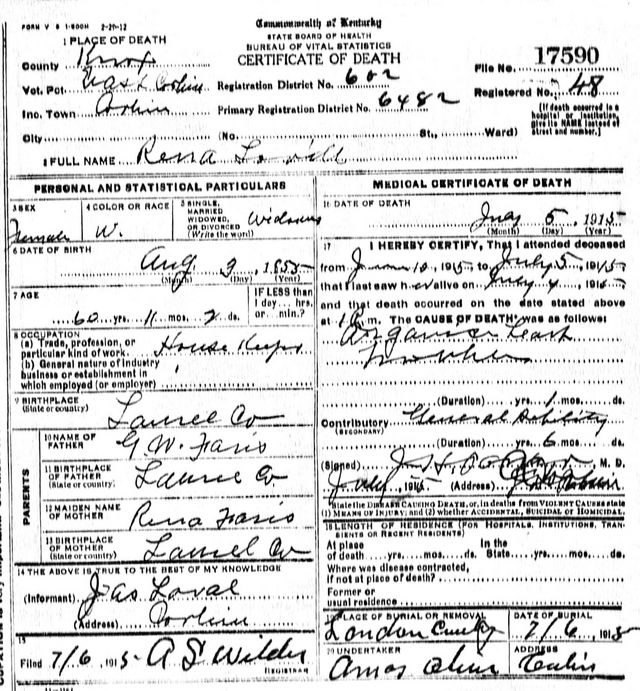 FORM V S 1-500M 2-29-12
Commonwealth of Kentucky
STATE BOARD OF HEALTH
BUREAU OF VITAL STATISTICS
CERTIFICATE OF DEATH
1 PLACE OF DEATH
County Knox
Vot. Pct. East Corbin
Inc. Town Corbin
City
Registration District No. 602
Primary Registration District No. 6482
(No. St., Ward)
File No. 17590
Registered No. 48
[If death occurred in a hospital or institution, give its NAME instead of street and number.]
2 FULL NAME Rena
PERSONAL AND STATISTICAL PARTICULARS
3 SEX
Female
4 COLOR OR RACE
W.
5 SINGLE, MARRIED WIDOWED, OR DIVORCED (Write the word)
Widowed
6 DATE OF BIRTH
Aug 3, 1855
(Month) (Day) (Year)
7 AGE
60 yrs. 11 mos. 2 ds.
IF LESS than 1 day... hrs. or min.?
8 OCCUPATION
(a) Trade, profession, or particular kind of work. House Keeper
(b) General nature of industry business or establishment in which employed (or employer)
9 BIRTHPLACE
(State or country)
Laurel Co
PARENTS
10 NAME OF FATHER
G W. Faris
11 BIRTHPLACE OF FATHER
(State or country)
Laurel Co
12 MAIDEN NAME OF MOTHER
Rena Faris
13 BIRTHPLACE OF MOTHER
(State or country)
Laurel Co
14 THE ABOVE IS TRUE TO THE BEST OF MY KNOWLEDGE
(Informant) Jas Loval
(Address) Corbin
15
Filed 7/6, 1915 A S Wilder
REGISTRAR
MEDICAL CERTIFICATE OF DEATH
16 DATE OF DEATH
5, 1915
(Month) (Day) (Year)
17 I HEREBY CERTIFY, That I attended deceased
from 10, 1915, to July 5, 1915
that I last saw her alive on July 4, 1915
and that death occurred on the date stated above
at 1 m. The CAUSE OF DEATH was as follows:
(Duration) yrs. 1 mos. ds.
Contributory General debility
(SECONDARY)
(Duration) yrs. 6 mos. ds.
(Signed) M. D.
July, 1915 (Address)
State the DISEASE CAUSING DEATH, or, in deaths from VIOLENT CAUSES state
1) MEANS OF INJURY; and (2) whether ACCIDENTAL, SUICIDAL or HOMICIDAL.
18 LENGTH OF RESIDENCE (FOR HOSPITALS, INSTITUTIONS, TRANSIENTS OR RECENT RESIDENTS)
At place of death yrs. mos. ds. In the State yrs. mos. ds.
Where was disease contracted, if not at place of death?
Former or usual residence
19 PLACE OF BURIAL OR REMOVAL
London
DATE OF BURIAL
7/6, 1915
20 UNDERTAKER
Amos
ADDRESS
Corbin